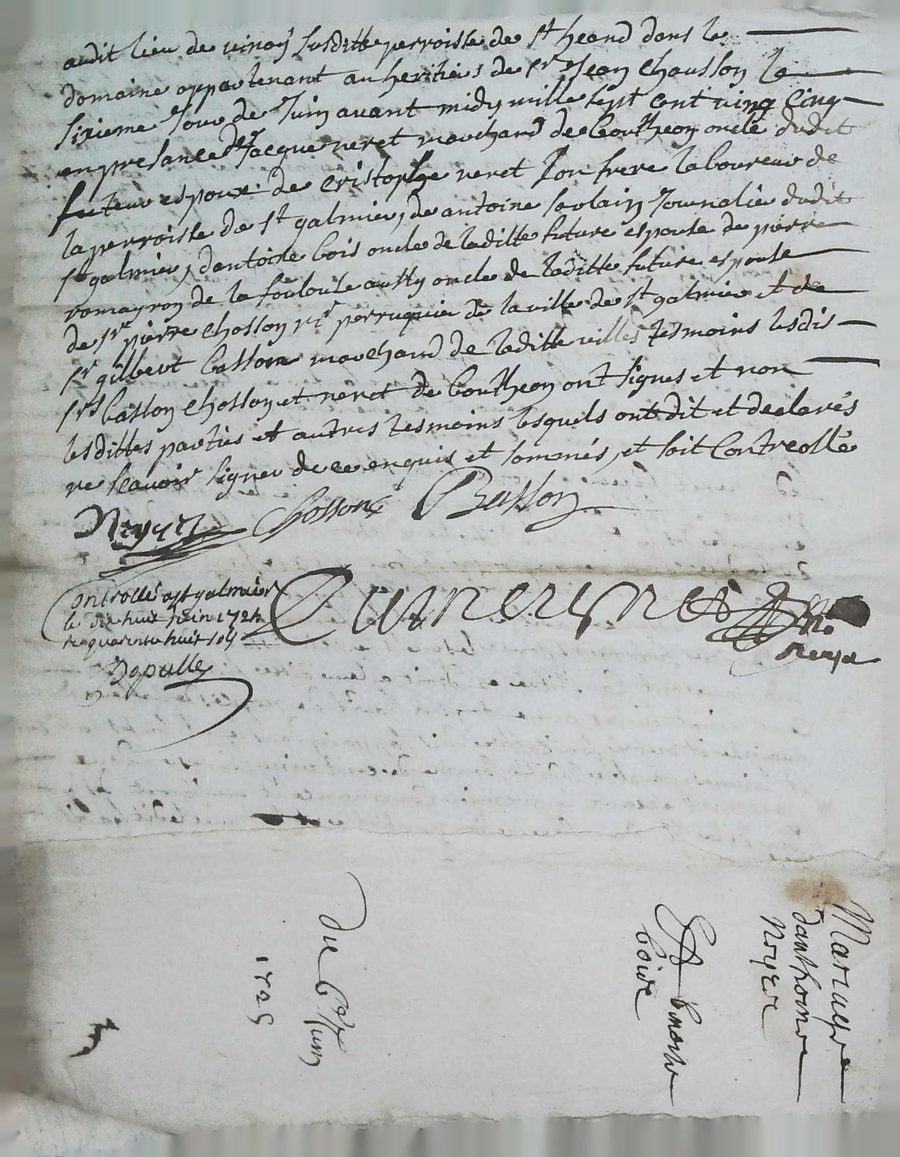 audit lieu de vinoy susditte perroisse de st heand dans le
domaine appartenant au heritiers de sr Jean Chausson le
sixieme Jour de Juin avant midy mille sept cent ving cinq
en presance de Jacque neret marchand de boutheon oncle dudit
futeur espoux de cristophe neret son frere laboureur de
la perroisse de st galmier, de antoine soulain Journalié dudit
st galmier, dantoine bois oncle de laditte future espouse de pierre
romayron de la fouloúse aussy oncle de laditte future espouse
de sr pierre Chosson mr perruquier de la ville de st galmier et de
sr gilbert basson marchand de laditte villes tesmoins lesdis
srs basson Chosson et neret de boutheon ont signes et non
lesditte parties et autres tesmoins lesquels ont dit et declarés
ne scavoir signer de ce enquis et sommés, et soit Controllé
Chosson Basson
Controllé a st galmier
le dix huit Juin 1725
r quarente huit sols
Dupuïlle
no
Mariage
danthoine
Noyer
Et
boive
du 6me Juin
1725